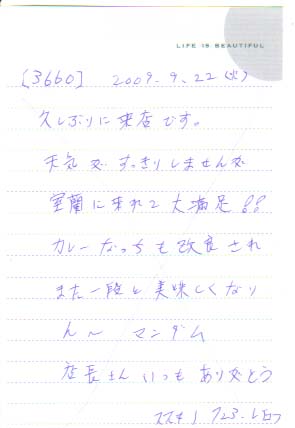 LIFE IS BEAUTIFUL
[3660] 2009.9.22(火)
久しぶりに来店です。
天気がすっきりしませんが
室蘭に来れて大満足!!
カレーなっちも改良され
また一段と美味しくなり
ん～ マンダム
店長さん いつも ありがとう